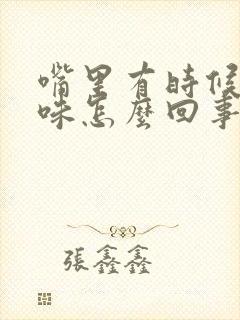 嘴里有時候
味怎麼回事
張鑫鑫